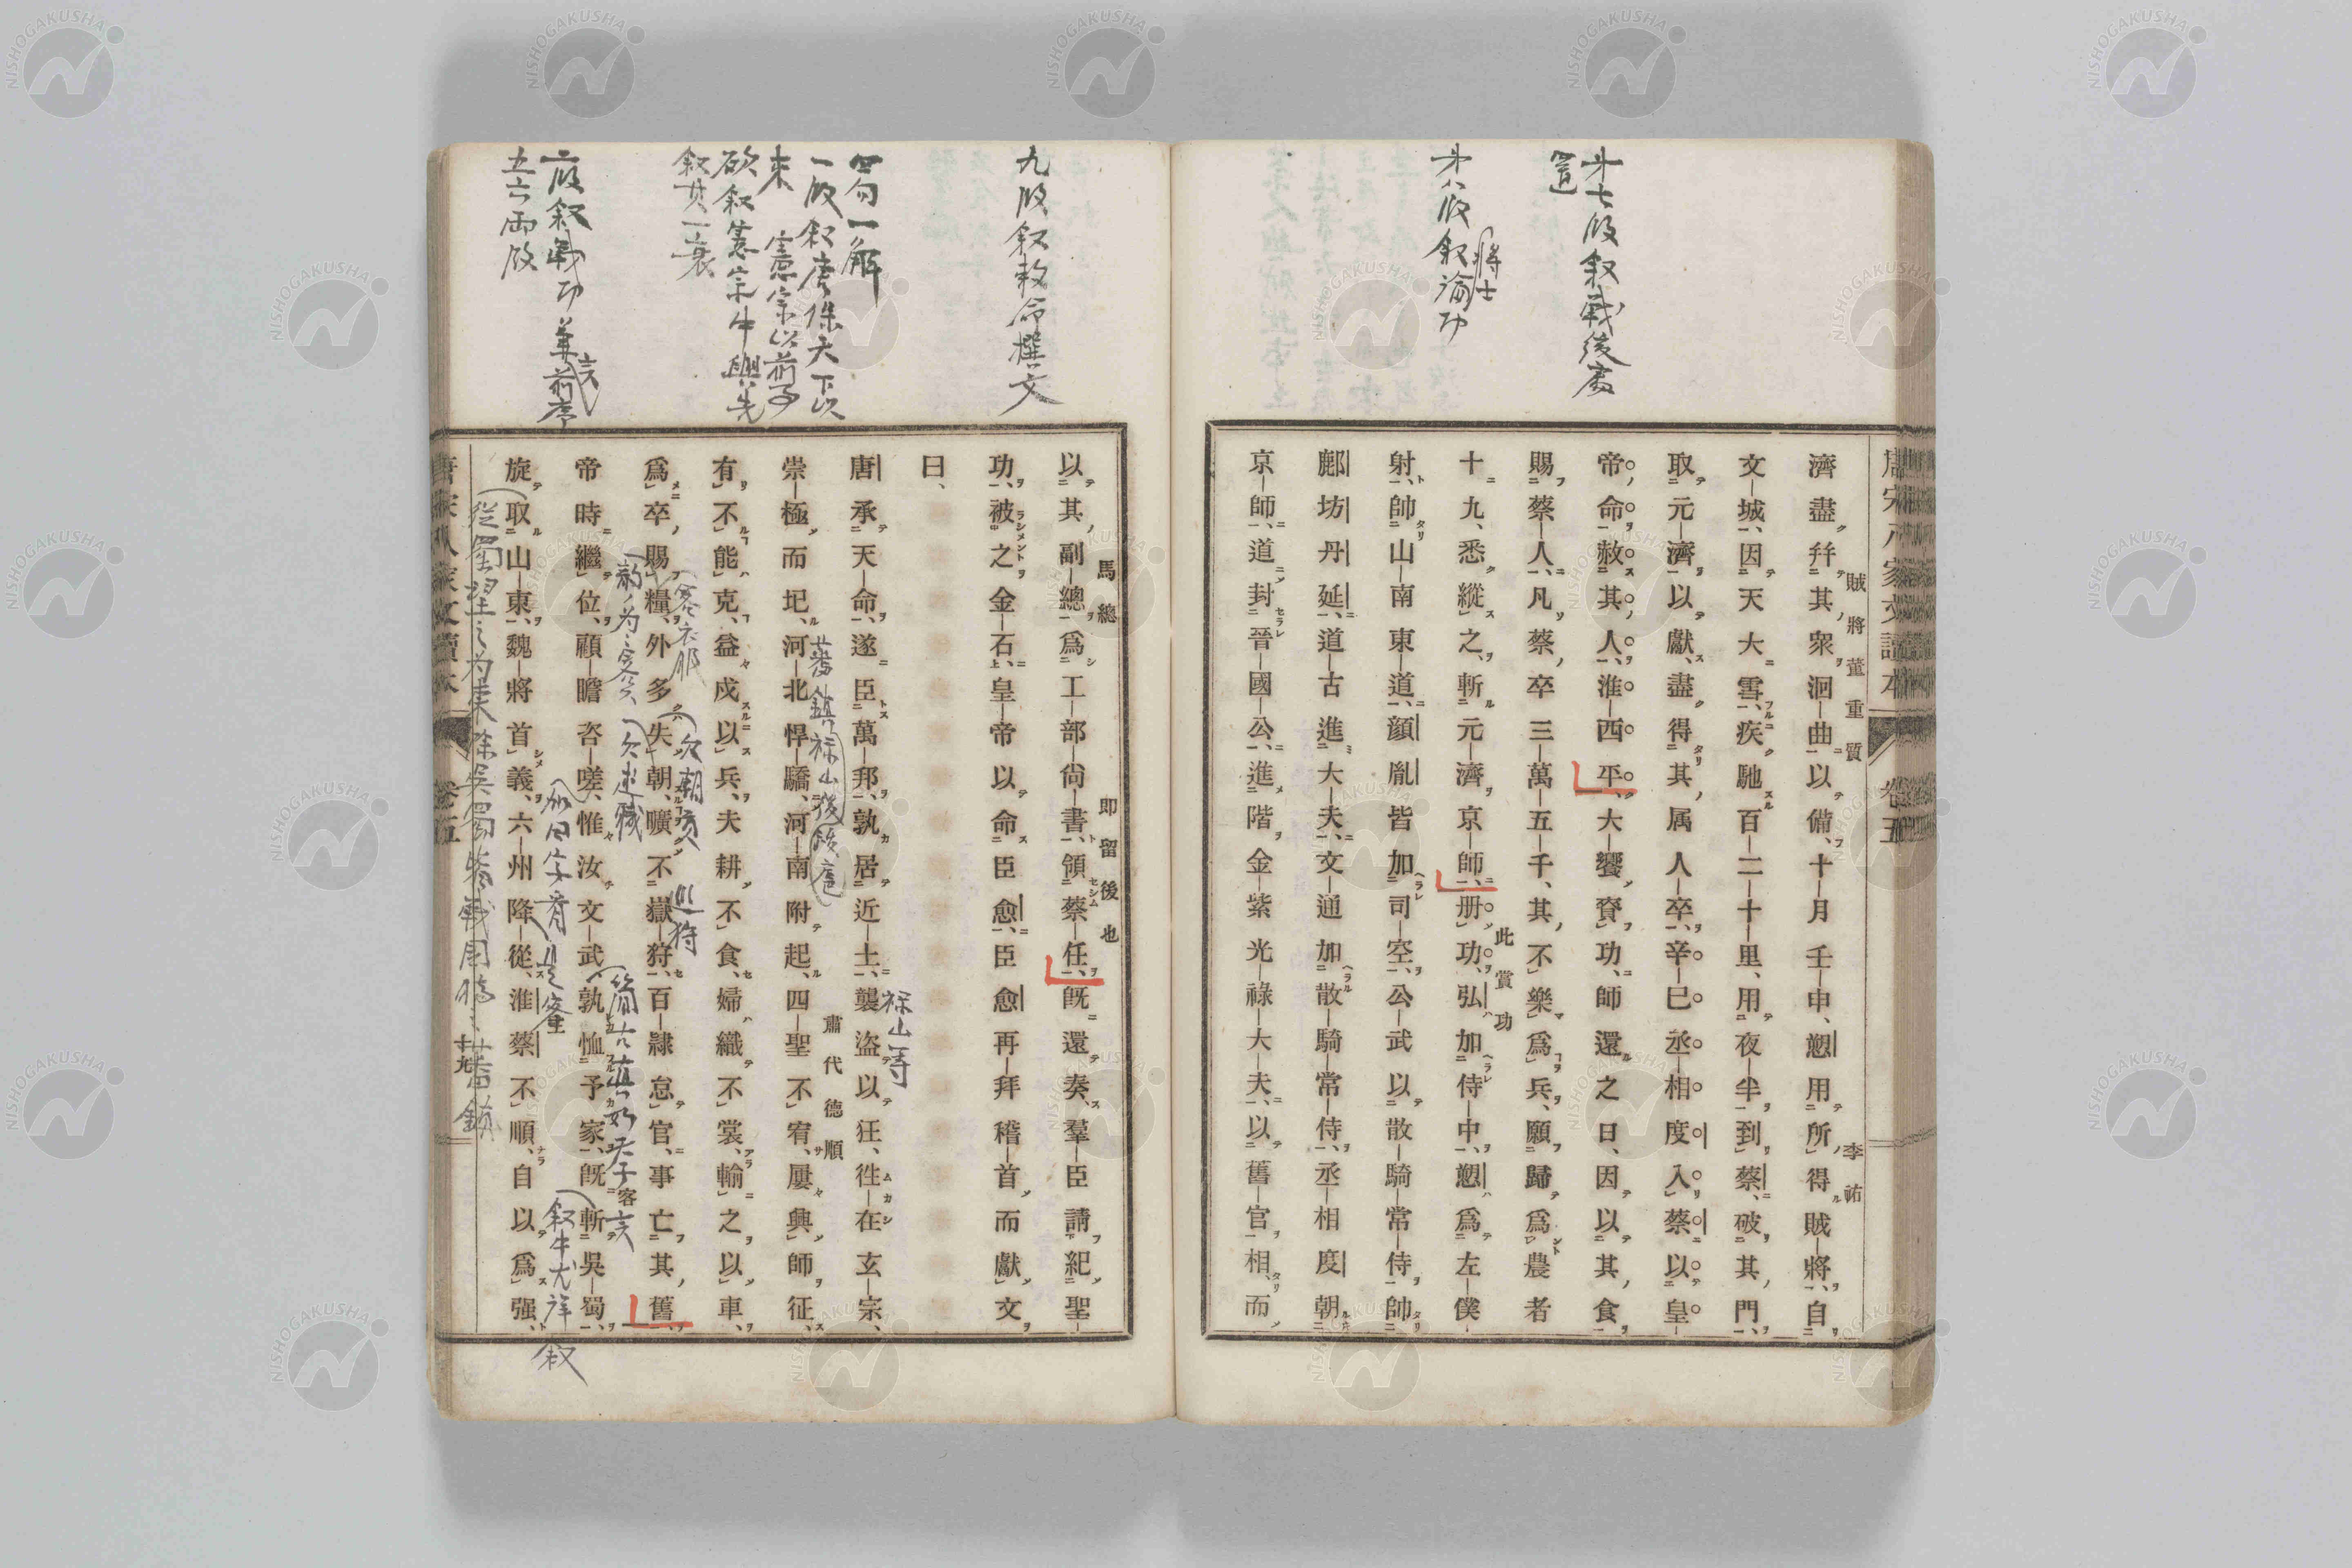 濟盡幷其衆洄曲以備十月壬申愬用所得賊將自
文城因天大雪疾馳百二十里用夜半到蔡破其門
取元濟以獻盡得其属人卒辛巳丞相度入蔡以皇
帝命赦其人淮西平大饗賚功師還之日因以其食
賜蔡人凡蔡卒三萬五千其不樂爲兵願歸爲農者
十九悉縱之斬元濟京師册功弘加侍中愬爲左僕
射帥山南東道顏胤皆加司空公武以散騎常侍帥
鄜坊丹延道古進大夫文通加散騎常侍丞相度朝
京師道封晉國公進階金紫光祿大夫以舊官相而
賊將董重質
李祐
此賞功
卷五
才七段叙戰後處
置
才八段叙論功
將士
以其副總爲工部尙書領蔡任旣還奏羣臣請紀聖
功被之金石皇帝以命臣愈臣愈再拜稽首而獻文
曰
唐承天命遂臣萬邦孰居近土襲盜以狂徃在玄宗
崇極而圮河北悍驕河南附起四聖不宥屢興師征
有不能克益戍以兵夫耕不食婦織不裳輸之以車
爲卒賜糧外多失朝曠不嶽狩百隷怠官事亡其舊
帝時繼位顧瞻咨嗟惟汝文武孰恤予家旣斬吳蜀
旋取山東魏將首義六州降從淮蔡不順自以爲强
馬總
卽留後也
肅代德順
九段叙敕命撰文
四句一解
一段叙唐保天下以
來
憲宗以前事
欲叙憲宗中興先
叙其一衰
二段叙戰功
五六兩段
祿山等
巡狩
十九